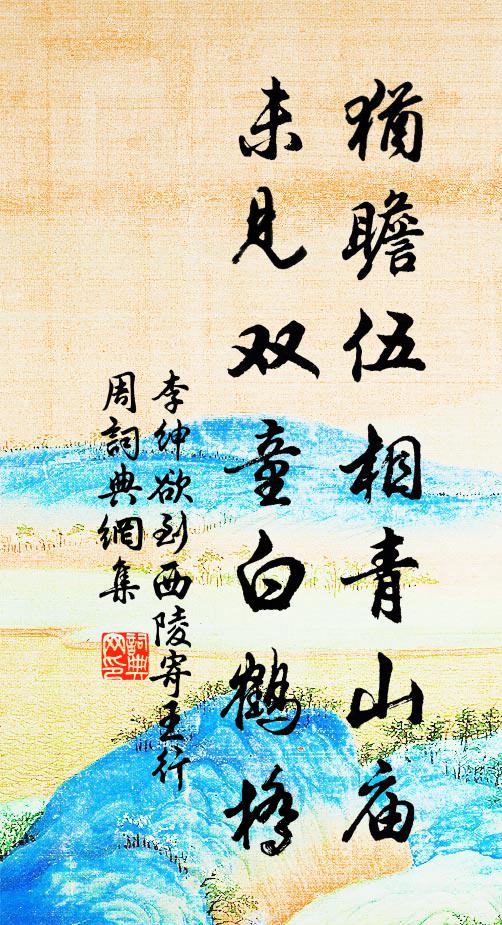 猶瞻伍相青山庙
未見双童白鶴橋
李紳欲到西陵寄王行
周詞典網集